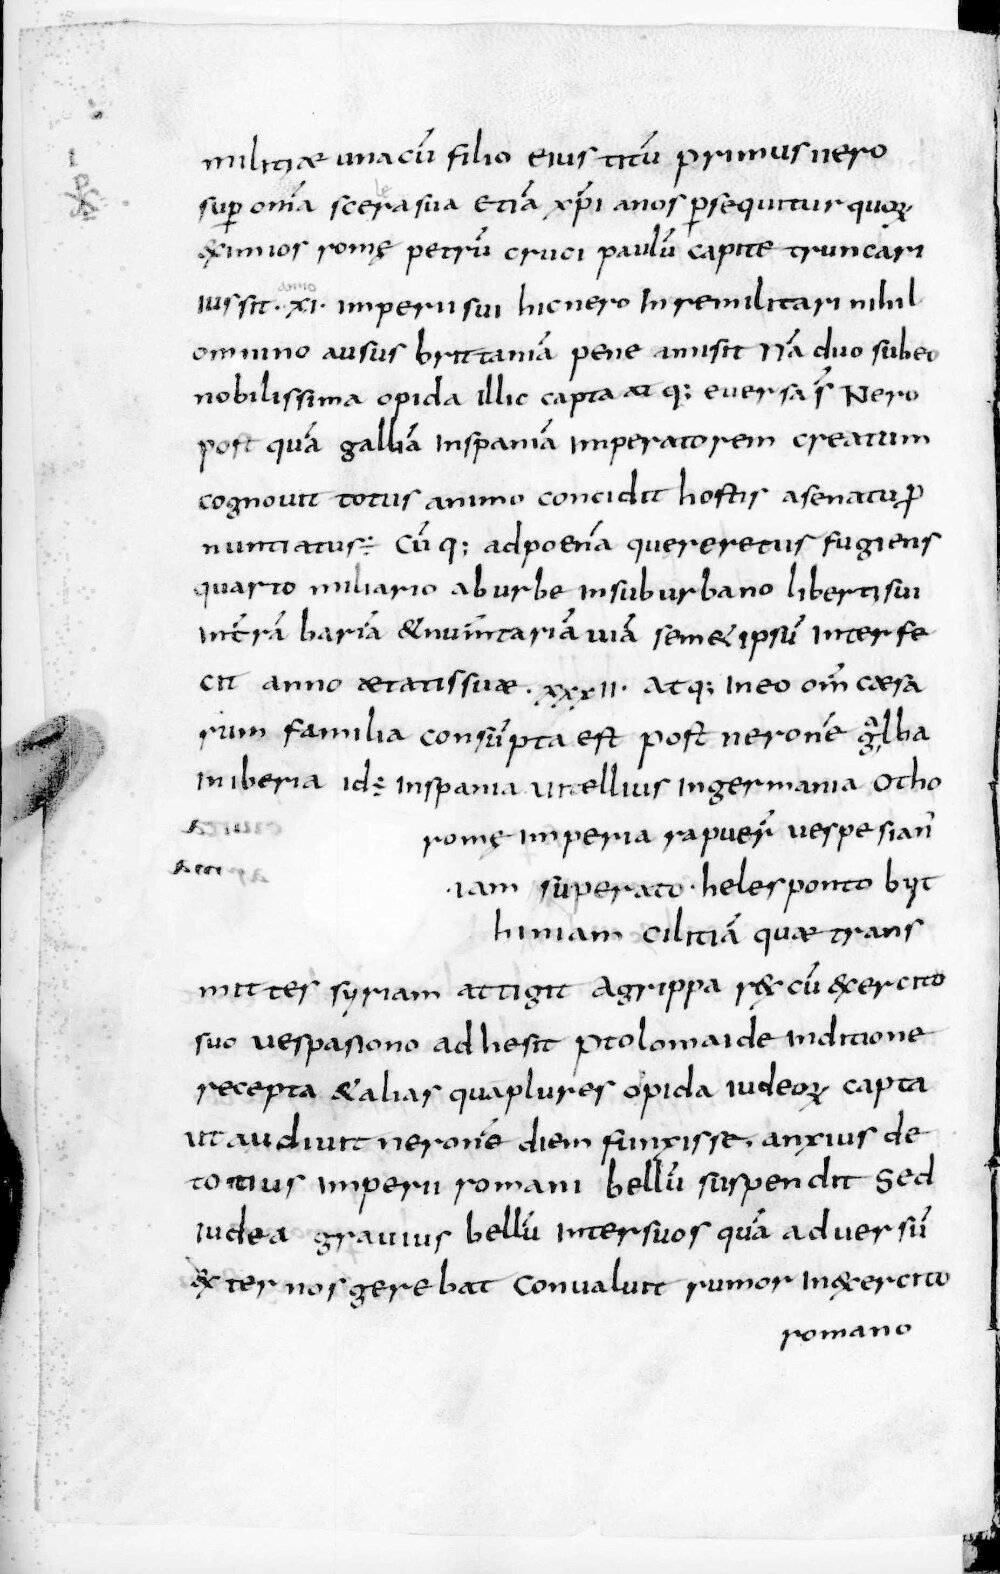 militiæ unacū filio eius titū primus nero
suꝑ om̄a scelera sua etiā xp̄i anos ꝑsequitur quoꝝ
&ximios romę petrū cruci paulū capite truncari
iussit · anno xi · imperii sui hic nero in re militari nihil
omnino ausus brittaniā pene amisit Nā duo sub eo
nobilissima opida illic capta atq; euersa s̄ Nero
post quā galbā inspaniā imperatorem creatum
cognouit totus animo concidit hostis asenatu ꝓ
nuntiatus: Cūq; adpoenā quereretus fugiens
quarto miliario aburbe insuburbano liberti sui
int̄ salariā &numentariā uiā sem& ipsū interfe
cit anno ætatis suæ · xxxii · Atq; ineo om̄ cæsa
rum familia consūpta est post neronē galba
iniberia id÷ inspania uitellius ingermania Otho
romę imperia rapuer̄ uespesian̄
·iam superato · helesponto byt
hiniam cilitiā quæ trans
mittes syriam attigit Agrippa r&x cū &xercito
suo uespasiono adhesit Ptolomaide inditione
recepta & alias quāplures opida iudeoꝝ capta
ut audiuit neronē diem funxisse. anxius de
totius imperii romani bellū suspendit Sed
iudea grauius bellū intersuos quā aduersū
&xternos gerebat Conualuit rumor in&xercito
romano